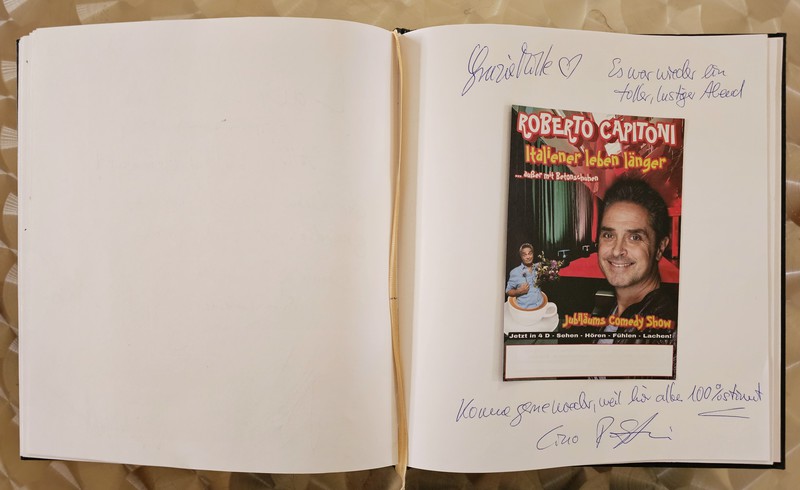 Grazie Mille ♡
Es war wieder ein
toller, lustiger Abend
ROBERTO CAPITONI
Italiener leben länger
... außer mit Betonschuhen
Jubiläums Comedy Show
Jetzt in 4 D - Sehen - Hören - Fühlen - Lachen!
Komme gerne wieder, weil hier alles 100% stimmt
Ciao